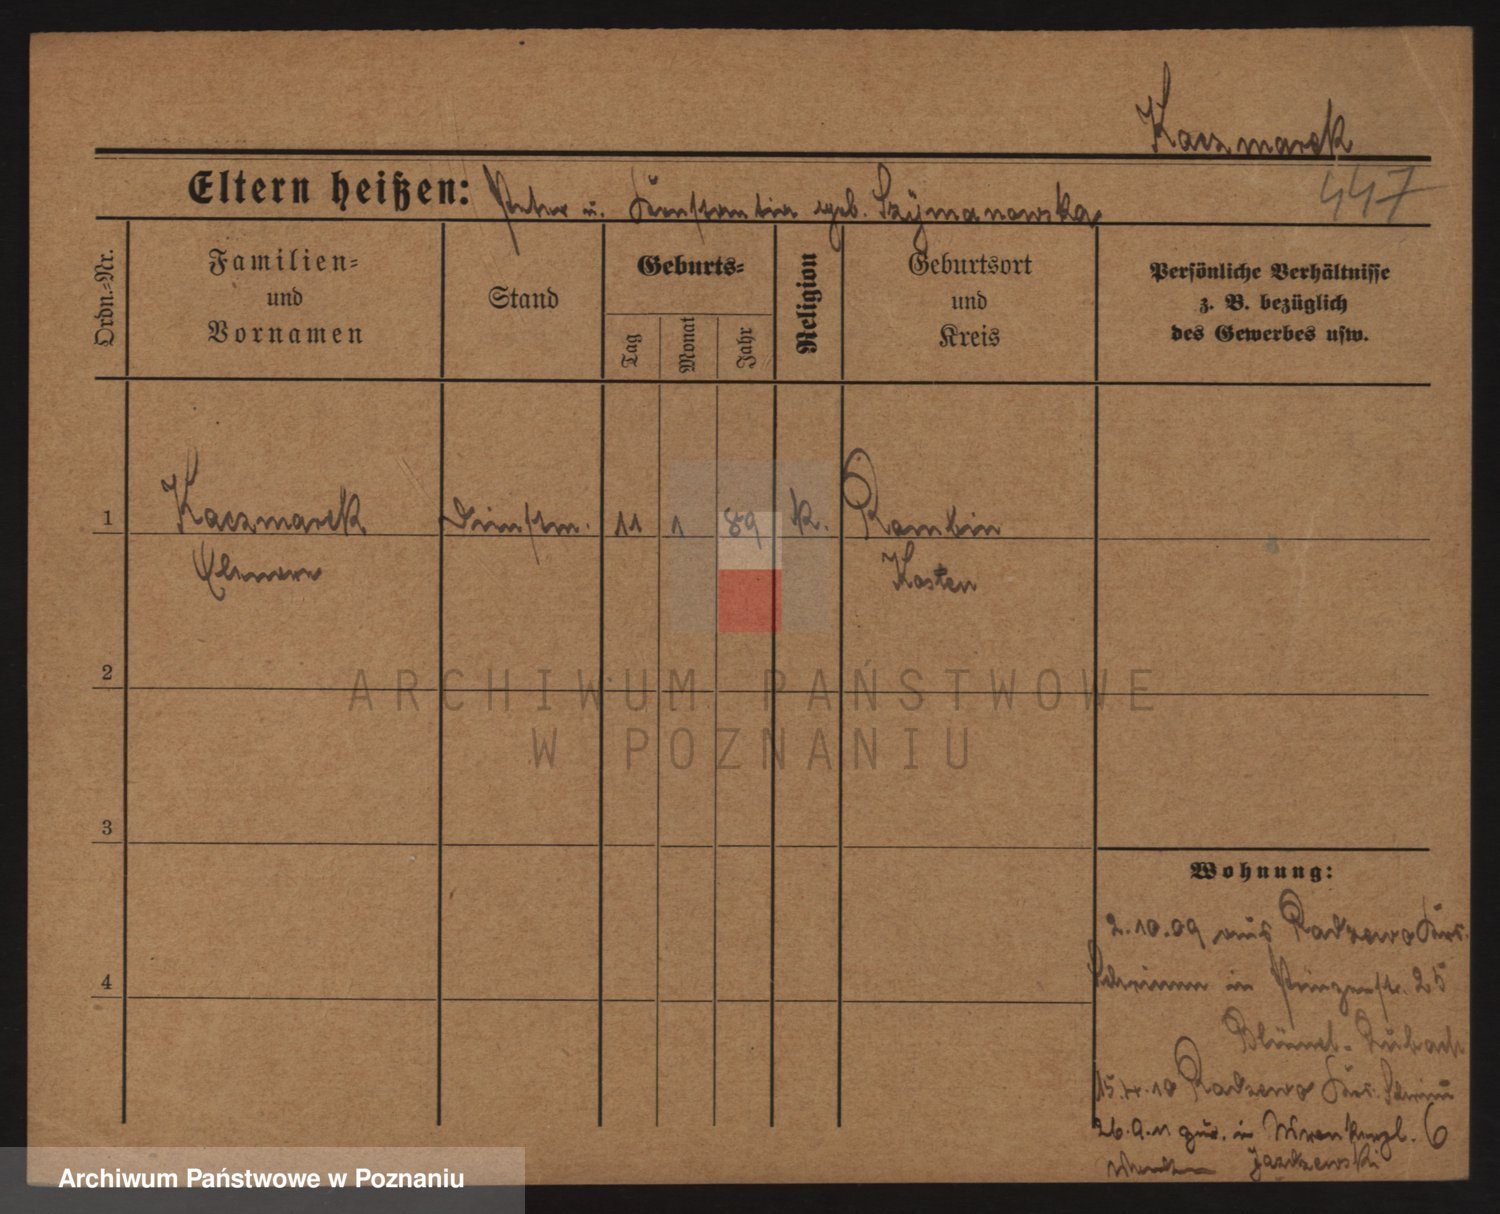 Kaczmarek
Eltern heißen: Peter u. Konstantia geb. Szÿmanowska
447
Ordn.-Nr.
Familien-
und
Vornamen
Stand
Geburts-
Tag
Monat
Jahr
Religion
Geburtsort
und
Kreis
Persönliche Verhältnisse
z. B. bezüglich
des Gewerbes usw.
1 Kaczmarek Dienstm. 11 1 89 K. Rombin
Eleonore Kosten
2
3
4
ARCHIWUM PAŃSTWOWE
W POZNANIU
Wohnung:
2.10.09 aus Radzewo Krs.
Schrimm in Prinzenstr. 25
15.4.10 Radzewo Krs. Schrimm
26.9.11 zur. in 6
Jazdzewski
Archiwum Państwowe w Poznaniu